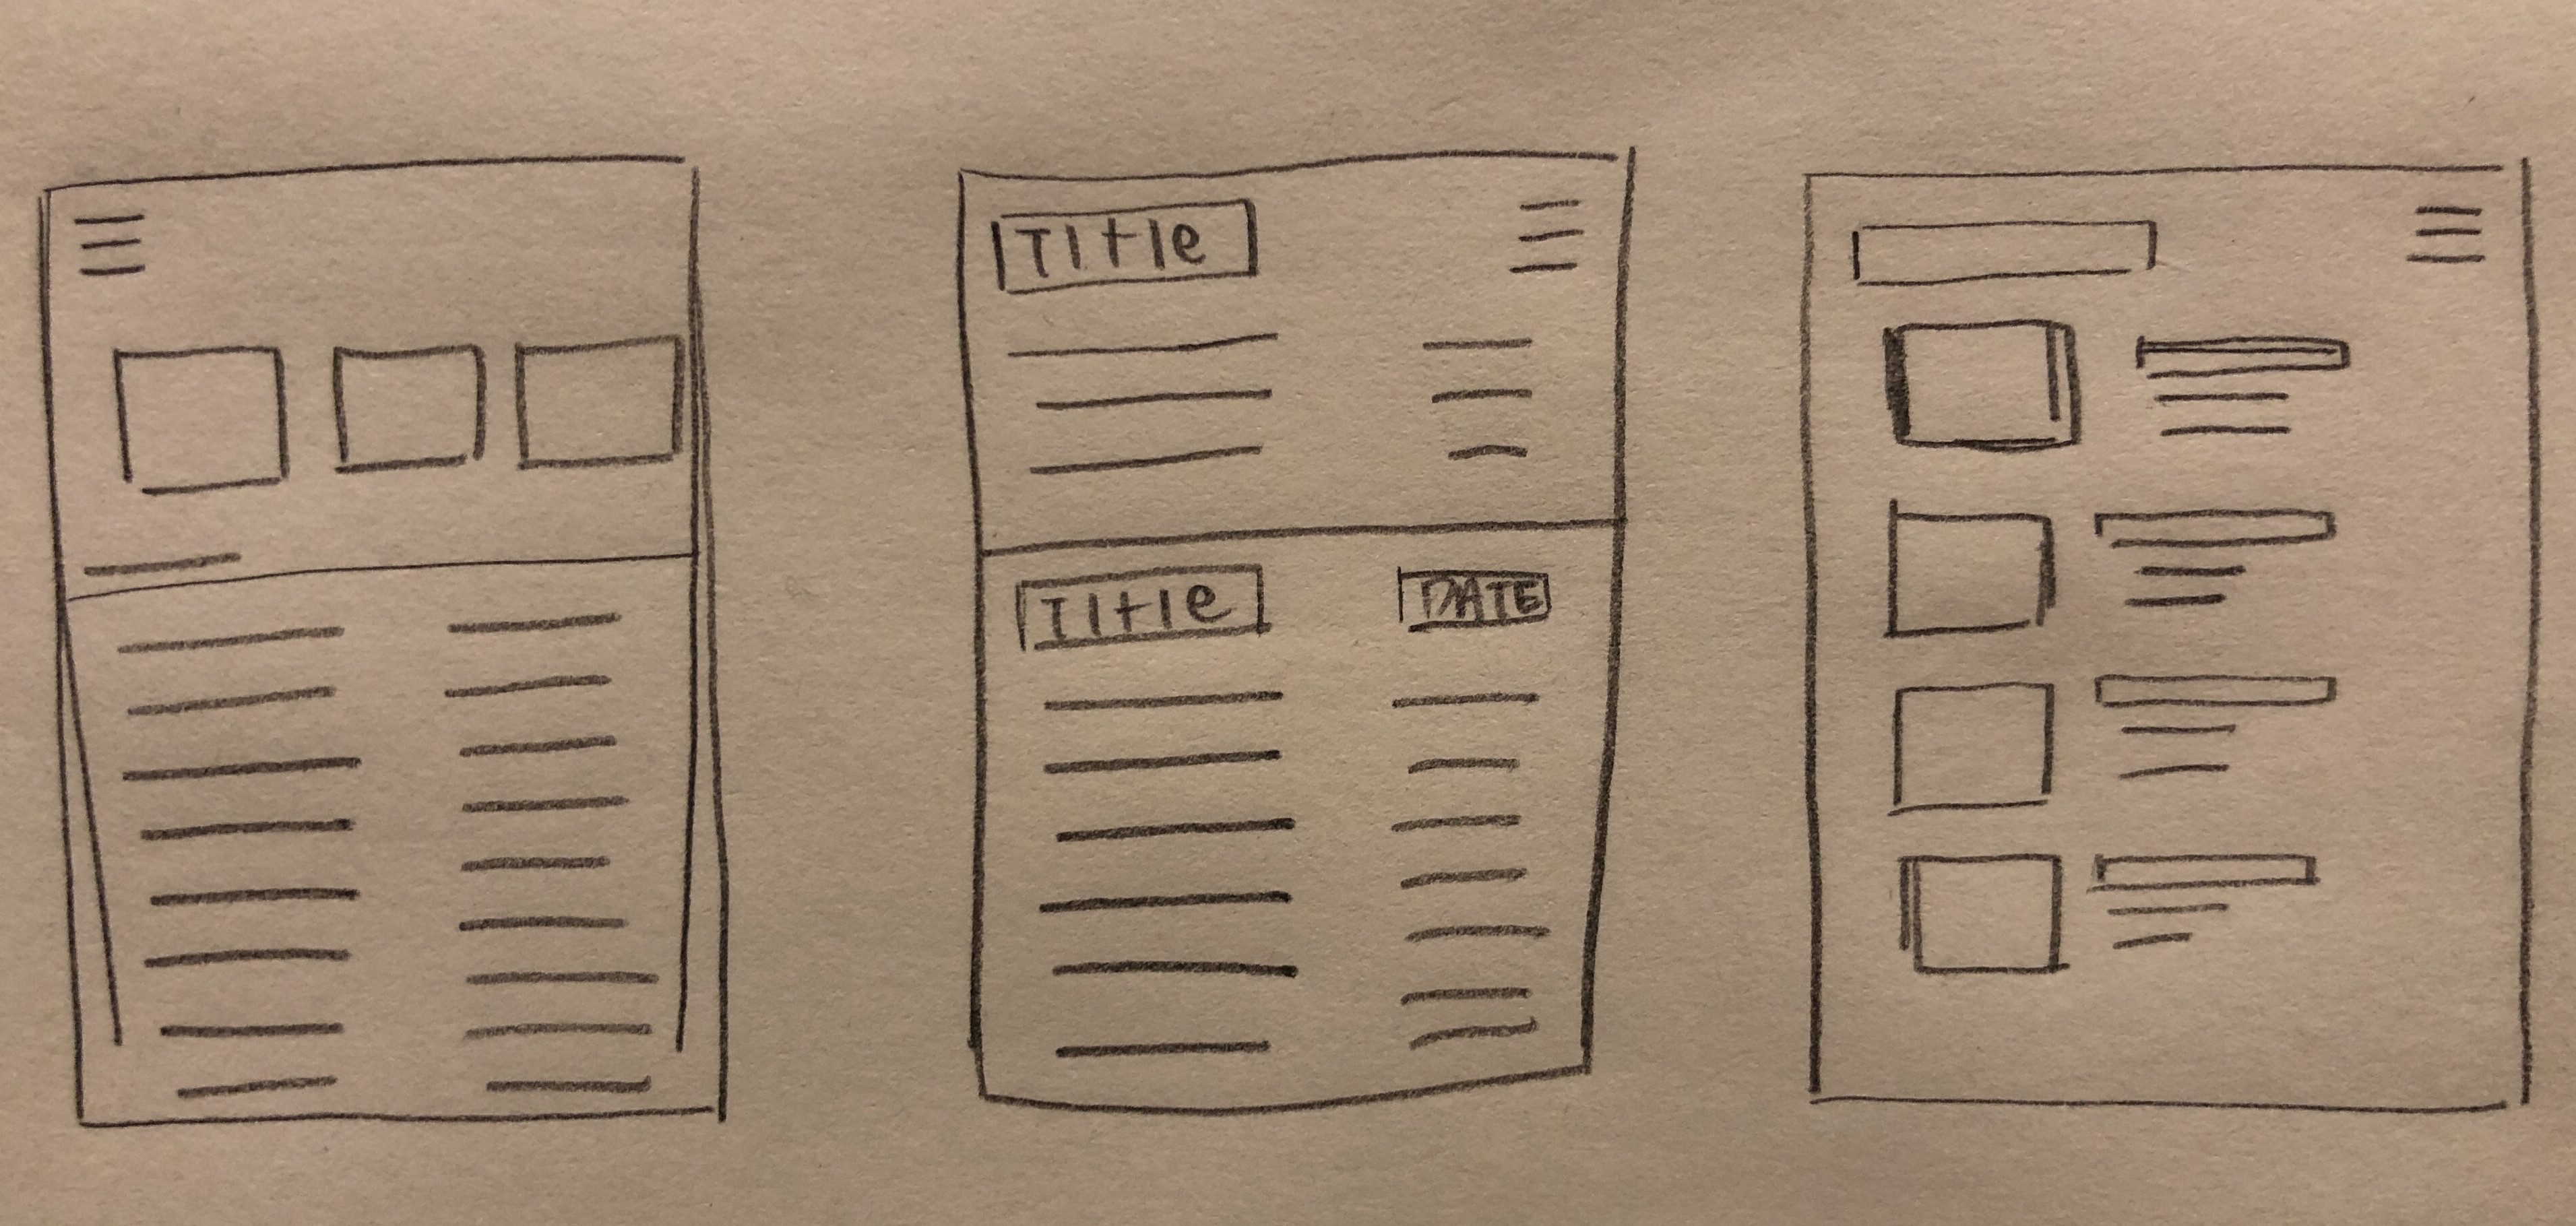 Title
Title
DATE